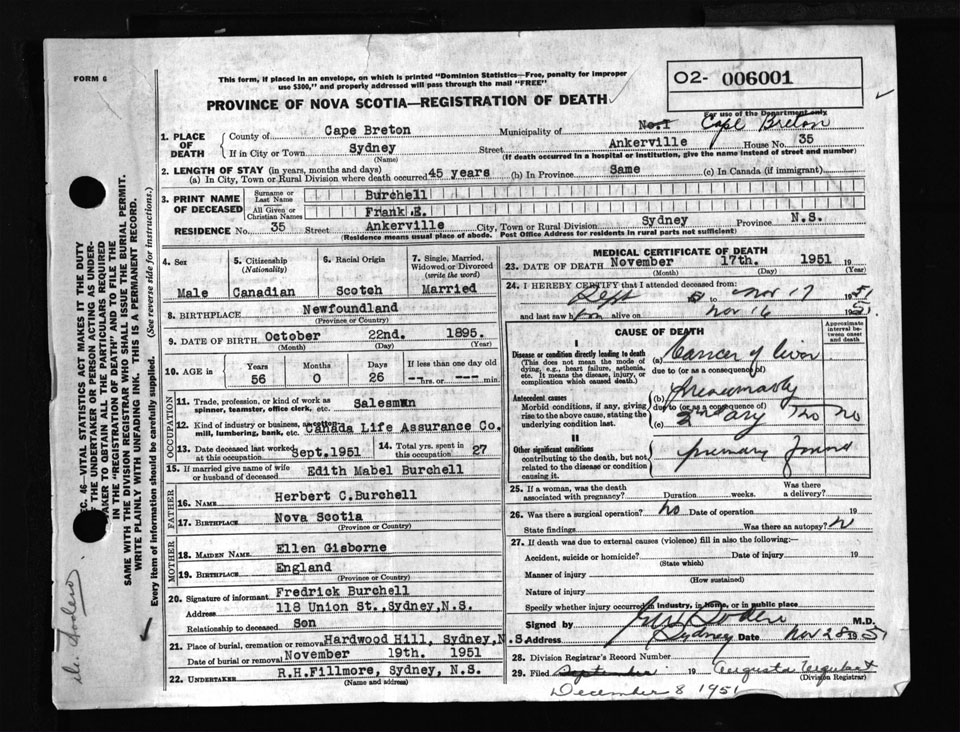 FORM 6
This form, if placed in an envelope, on which is printed "Dominion Statistics—Free, penalty for improper
use $300," and properly addressed will pass through the mail "FREE"
PROVINCE OF NOVA SCOTIA—REGISTRATION OF DEATH
02- 006001
For use of the Department only
1. PLACE OF DEATH
County of Cape Breton Municipality of No.1 Cape Breton
If in City or Town Sydney Street Ankerville House No. 35
(Name) (If death occurred in a hospital or institution, give the name instead of street and number)
2. LENGTH OF STAY (in years, months and days)
(a) In City, Town or Rural Division where death occurred 45 years (b) In Province Same (c) In Canada (if immigrant)
3. PRINT NAME OF DECEASED
Surname or Last Name Burchell
All Given or Christian Names Frank E.
RESIDENCE No. 35 Street Ankerville City, Town or Rural Division Sydney Province N.S.
(Residence means usual place of abode. Post Office Address for residents in rural parts not sufficient)
4. Sex Male
5. Citizenship (Nationality) Canadian
6. Racial Origin Scotch
7. Single, Married, Widowed or Divorced (write the word) Married
8. BIRTHPLACE Newfoundland
(Province or Country)
9. DATE OF BIRTH October 22nd. 1895.
(Month) (Day) (Year)
10. AGE in Years Months Days If less than one day old
56 0 26 --- hrs. or --- min.
OCCUPATION
11. Trade, profession, or kind of work as
spinner, teamster, office clerk, etc. Salesman
12. Kind of industry or business, as cotton
mill, lumbering, bank, etc. Canada Life Assurance Co.
13. Date deceased last worked at this occupation Sept.1951
14. Total yrs. spent in this occupation 27
15. If married give name of wife
or husband of deceased Edith Mabel Burchell
FATHER
16. NAME Herbert C.Burchell
17. BIRTHPLACE Nova Scotia
(Province or Country)
MOTHER
18. MAIDEN NAME Ellen Gisborne
19. BIRTHPLACE England
(Province or Country)
20. Signature of informant Fredrick Burchell
Address 118 Union St.,Sydney,N.S.
Relationship to deceased Son
21. Place of burial, cremation or removal Hardwood Hill, Sydney,N.S
Date of burial or removal November 19th. 1951
22. UNDERTAKER R.H.Fillmore, Sydney, N.S.
(Name and address)
MEDICAL CERTIFICATE OF DEATH
23. DATE OF DEATH November 17th. 1951 19
(Month) (Day) (Year)
24. I HEREBY CERTIFY that I attended deceased from:
Sept to Nov 17 1951
and last saw him alive on Nov 16 1951
CAUSE OF DEATH
Approximate interval between onset and death
I
Disease or condition directly leading to death
(This does not mean the mode of
dying, e.g., heart failure, asthenia,
etc. It means the disease, injury, or
complication which caused death.)
(a) Cancer of liver
due to (or as a consequence of)
Antecedent causes
Morbid conditions, if any, giving
rise to the above cause, stating the
underlying condition last.
(b) presumably
due to (or as a consequence of)
(c) 2ndary Tho no
II
Other significant conditions
contributing to the death, but not
related to the disease or condition
causing it.
primary found
25. If a woman, was the death
associated with pregnancy? Duration weeks. Was there a delivery?
26. Was there a surgical operation? no Date of operation 19
State findings Was there an autopsy? N
27. If death was due to external causes (violence) fill in also the following:—
Accident, suicide or homicide? Date of injury 19
(State which)
Manner of injury
(How sustained)
Nature of injury
Specify whether injury occurred in industry, in home, or in public place
Signed by M.D.
Address Sydney Nov 28 1951
28. Division Registrar's Record Number
29. Filed September 19 Augusta Urquhart
(Division Registrar)
December 8 1951
SEC. 46—VITAL STATISTICS ACT MAKES IT THE DUTY
OF THE UNDERTAKER OR PERSON ACTING AS UNDER-
TAKER TO OBTAIN ALL THE PARTICULARS REQUIRED
IN THE "REGISTRATION OF DEATH" AND TO FILE THE
SAME WITH THE DIVISION REGISTRAR WHO SHALL ISSUE THE BURIAL PERMIT.
WRITE PLAINLY WITH UNFADING INK. THIS IS A PERMANENT RECORD.
Every item of information should be carefully supplied. (See reverse side for instructions.)